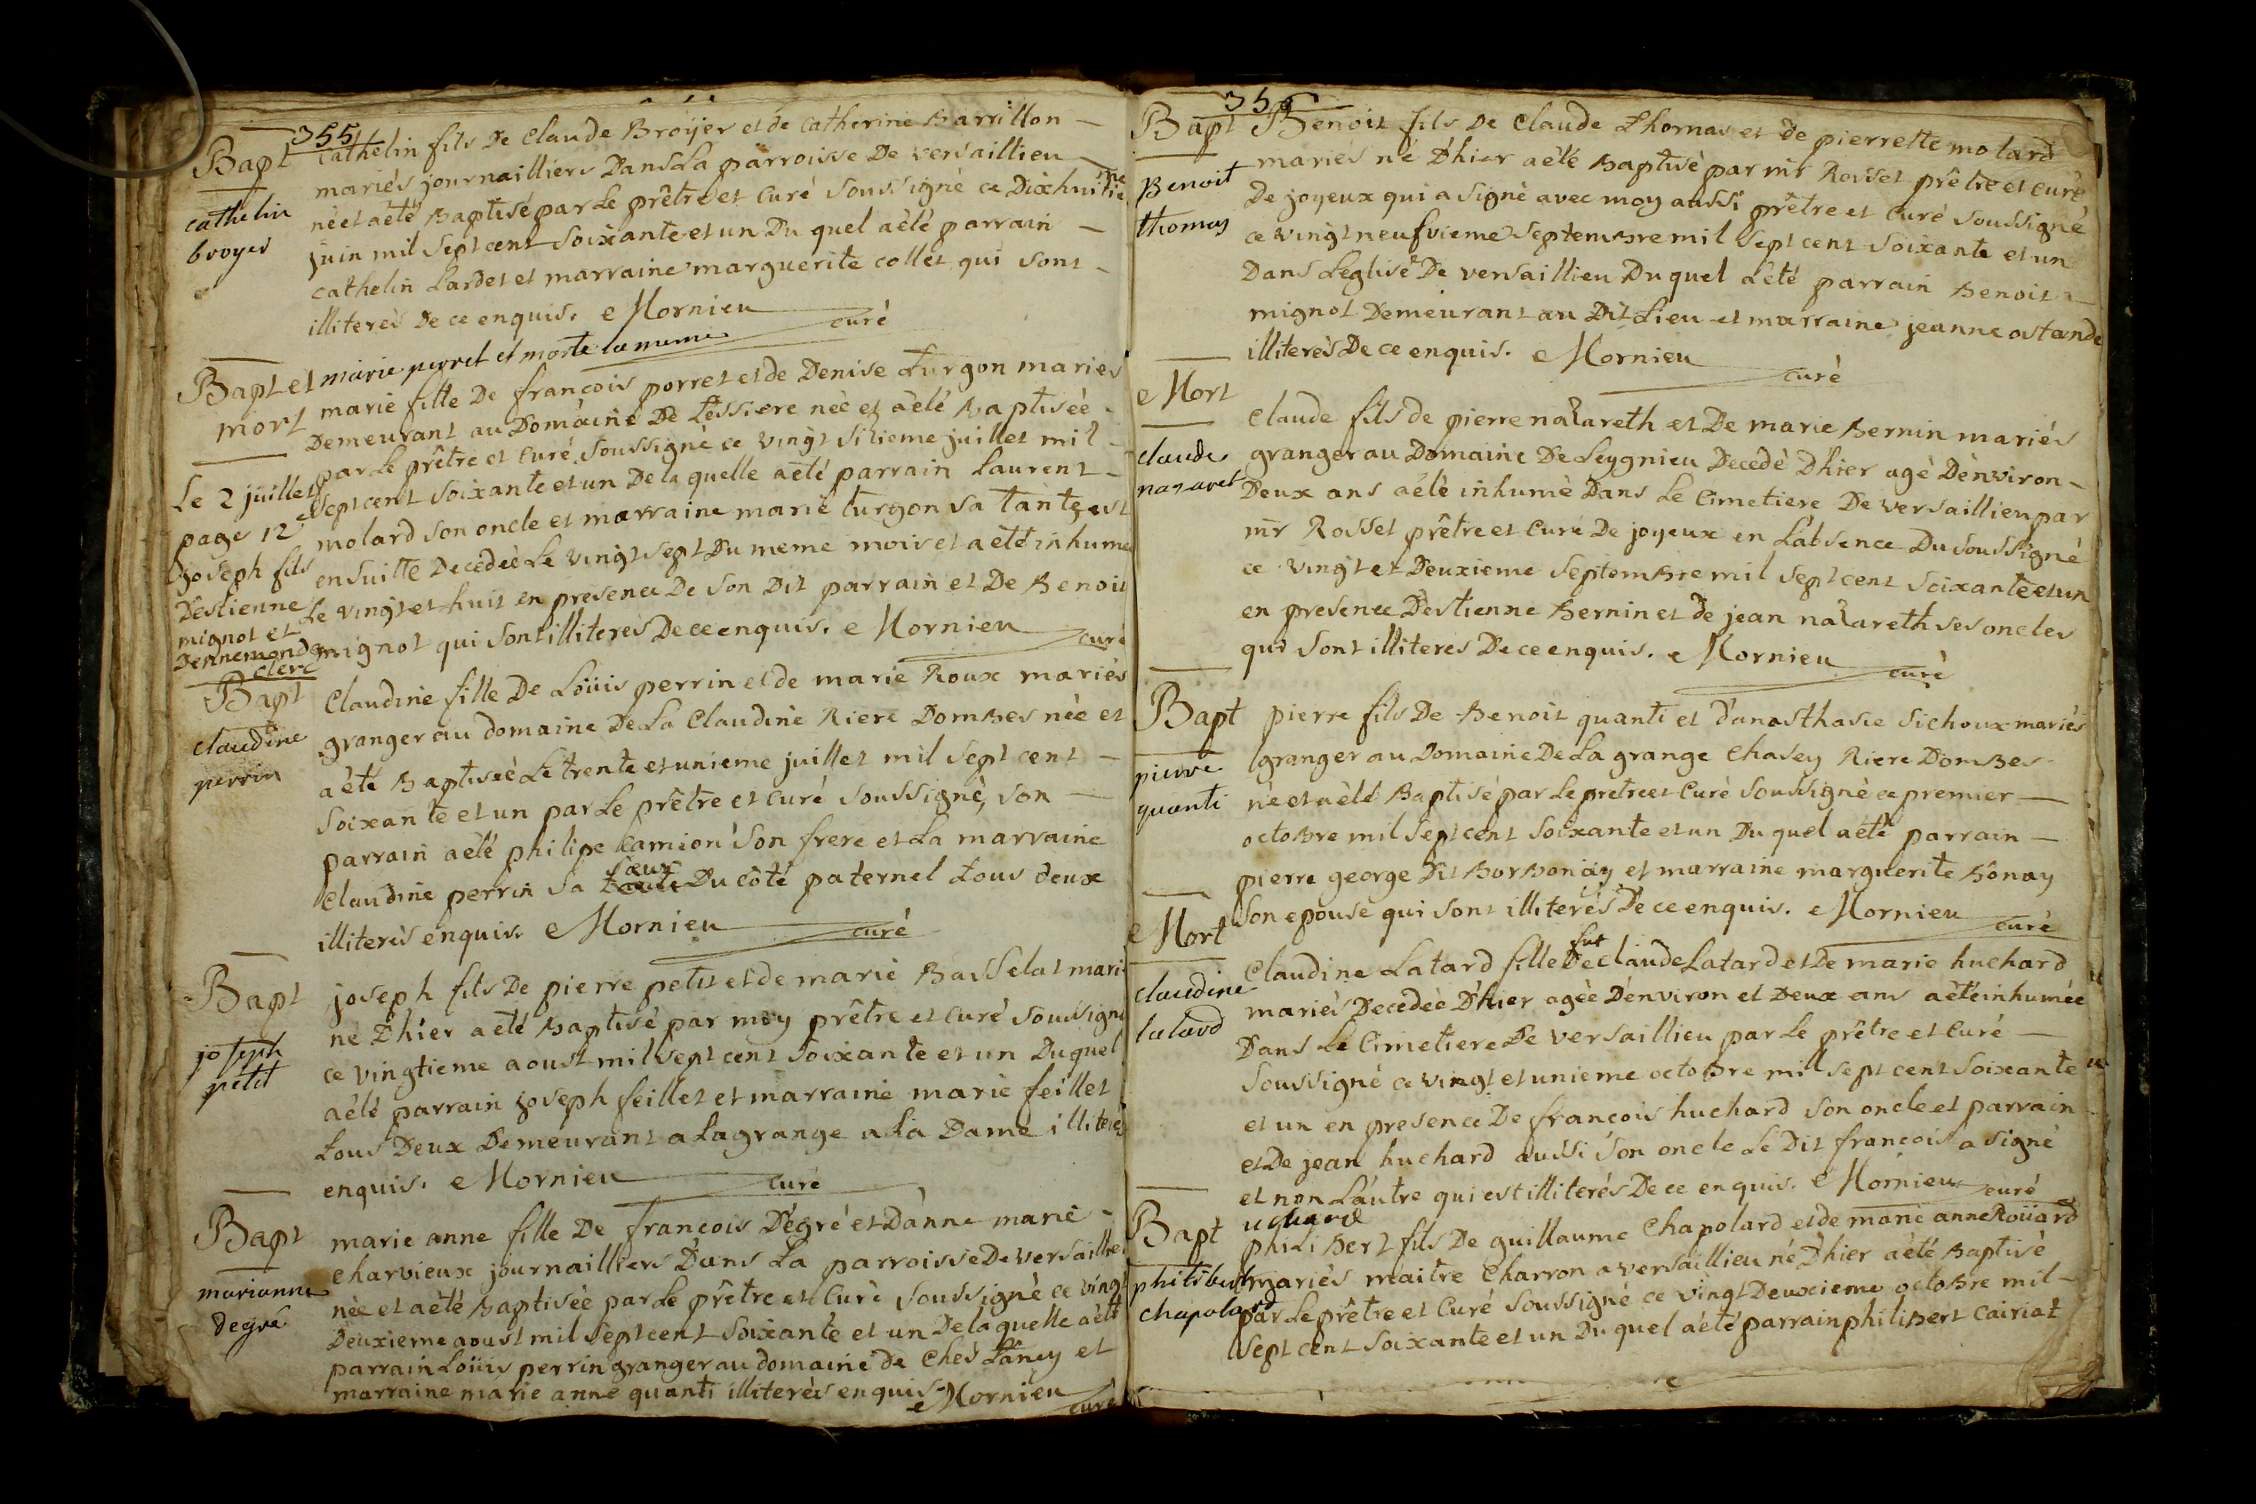 355
Bapt
cathelin
broyer
Cathelin fils De Claude Broÿer et de Catherine Barrillon
mariés journailliers Dans La parroisse De versaillieu
né et a été Baptisé par Le prêtre et Curé soussigné ce Dixhuitie
juin mil sept cent soixante et un Du quel a été parrain
cathelin Lardet et marraine marguerite collet qui sont
illiterés De ce enquis. Mornieu curé
Bapt et
mort
marie perret et morte la meme
marie fille De françois porret et de Denise Turgon mariés
Demeurant au Domaine De Lessiere née et a été Baptisée
par Le prêtre et Curé soussigné ce vingt sixieme juillet mil
sept cent soixante et un De la quelle a été parrain Laurent
molard son oncle et marraine marie turgon sa tante, est
ensuitte Decedeé Le vingt sept Du meme mois et a été inhumé
Le vingt et huit en presence De son Dit parrain et De Benoit
mignot qui sont illiterés De ce enquis. Mornieu curé
Le 2 juillet
page 12
joseph fils
D'estienne
mignot et
Dennemonde
clerc
Bapt
claudine
perrin
Claudine fille De Loüis perrin et de marie Roux mariés
granger au domaine De La Claudine Riere Dombes née et
a été Baptiseé Le trente et unieme juillet mil sept cent
soixante et un par Le prêtre et curé soussigné, son
parrain a été philipe Camion son frere et La marraine
Claudine perrin sa soeur Du côté paternel tous deux
illiterés enquis Mornieu curé
Bapt
joseph
petit
joseph fils De pierre petit et de marie Basselat mari
né D'hier a été Baptisé par moy prêtre et curé soussigné
ce vingtieme aoust mil sept cent soixante et un Duquel
a été parrain joseph feillet et marraine marie feillet
tous Deux Demeurant a Lagrange a La Dame illiterés
enquis. Mornieu curé
Bapt
marianne
degré
marie anne fille De francois Degré et D'anne marie
charvieux journailliers Dans La parroisse De versaillieu
née et a été Baptisée par Le prêtre et Curé soussigné ce vingt
Deuxieme aoust mil sept cent soixante et un De la quelle a été
parrain Loüis perrin granger au domaine de Ches Lancy et
marraine marie anne quanti illiterés enquis Mornieu
curé
Bapt
Benoit
thomas
Benoit fils De Claude Thomas et de pierrette molard
mariés né D'hier a été Baptisé par mr Rosset prêtre et curé
De joyeux qui a signé avec moy aussi prêtre et Curé soussigné
ce vingt neufvieme septembre mil sept cent soixante et un
Dans Leglise De versaillieu Du quel a été parrain Benoit
mignot Demeurant au Dit Lieu et marraine jeanne ostande
illiterés De ce enquis. Mornieu curé
Mort
claude
nazaret
Claude fils de pierre nazareth et De marie Bernin mariés
granger au Domaine De Leygnieu Decedé D'hier agé D'environ
Deux ans a été inhumé Dans Le Cimetiere De versaillieu par
mr Rosset prêtre et Curé De joyeux en L'absence Du soussigné
ce vingt et Deuxieme septembre mil sept cent soixante et un
en presence D'estienne Bernin et de jean nazareth ses oncles
qui sont illiteres De ce enquis. Mornieu curé
Bapt
pierre
quanti
pierre fils De Benoit quanti et d'anasthasie sichoux mariés
granger au Domaine De La grange Chasey Riere Dombes
né et a été Baptisé par Le prêtre et Curé soussigné ce premier
octobre mil sept cent soixante et un Du quel a été parrain
pierre george Dit Borbonay et marraine marguerite Bônay
son epouse qui sont illiterés De ce enquis. Mornieu curé
Mort
claudine
latard
Claudine Latard fille De fut Claude Latard et De marie huchard
mariés Decedeé D'hier agée D'environ et Deux ans a été inhumée
Dans Le Cimetiere De versaillieu par Le prêtre et Curé
soussigné ce vingt et unieme octobre mil sept cent soixante
et un en presence De francois huchard son oncle et parrain
et De jean huchard aussi son oncle Le Dit francois a signé
et non L'autre qui est illiterés De ce enquis. Mornieu curé
uchard
Bapt
philibert
chapolard
philibert fils De guillaume Chapolard et de marie anne Roüard
mariés maitre Charron a versaillieu né D'hier a été Baptisé
par Le prêtre et Curé soussigné ce vingt Deuxieme octobre mil
sept cent soixante et un Du quel a été parrain philibert Cairiat